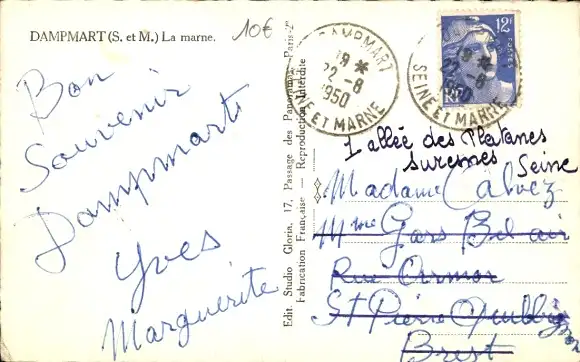 DAMPMART (S. et M.) La marne.
10€
Bon
Souvenir
Dampmart
Yves
Marguerite
Edit. Studio Gloria, 17, Passage des Panoramas, Paris-2e
Fabrication Française — Reproduction Interdite
DAMPMART
18 *
22 - 8
1950
SEINE ET MARNE
DAMPMART
18 *
22 - 8
1950
SEINE ET MARNE
12F
POSTES
RF
1 allée des Platanes
suresnes Seine
Madame Calvez
Mme Gars Bel air
Rue Armor
St Pierre Quilbignon
Brest